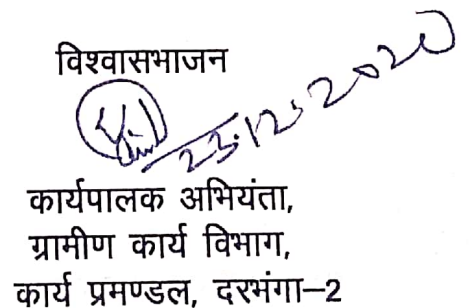 विश्वासभाजन
23.12.2020
कार्यपालक अभियंता,
ग्रामीण कार्य विभाग,
कार्य प्रमण्डल, दरभंगा–2